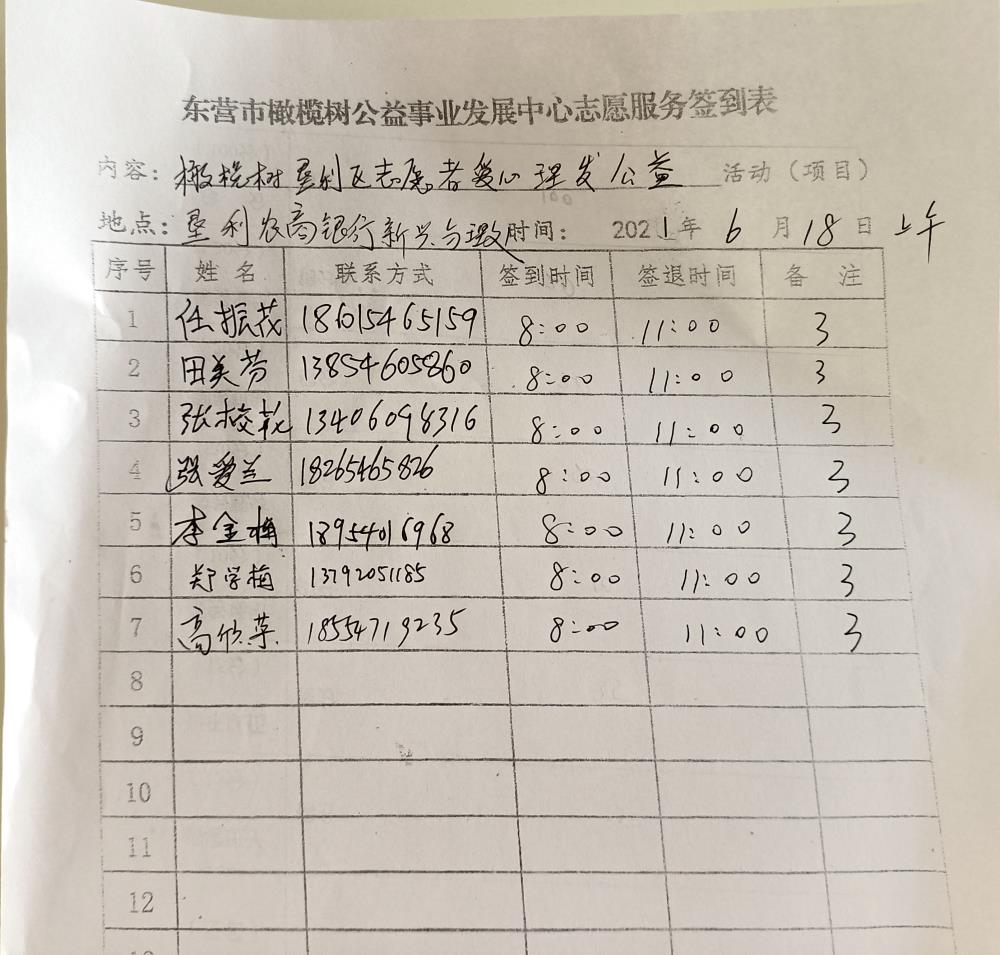 东营市橄榄树公益事业发展中心志愿服务签到表
内容：橄榄树垦利区志愿者爱心理发公益 活动（项目）
地点：垦利农商银行新兴分理处 时间： 2021年 6 月 18 日 上午
序号 姓名 联系方式 签到时间 签退时间 备注
1 任振茂 18615465159 8:00 11:00 3
2 田美芬 13854605860 8:00 11:00 3
3 张 13406098316 8:00 11:00 3
4 张爱兰 18265465826 8:00 11:00 3
5 李金梅 18954016968 8:00 11:00 3
6 郑学梅 13792051185 8:00 11:00 3
7 高欣荣 18554719235 8:00 11:00 3
8
9
10
11
12